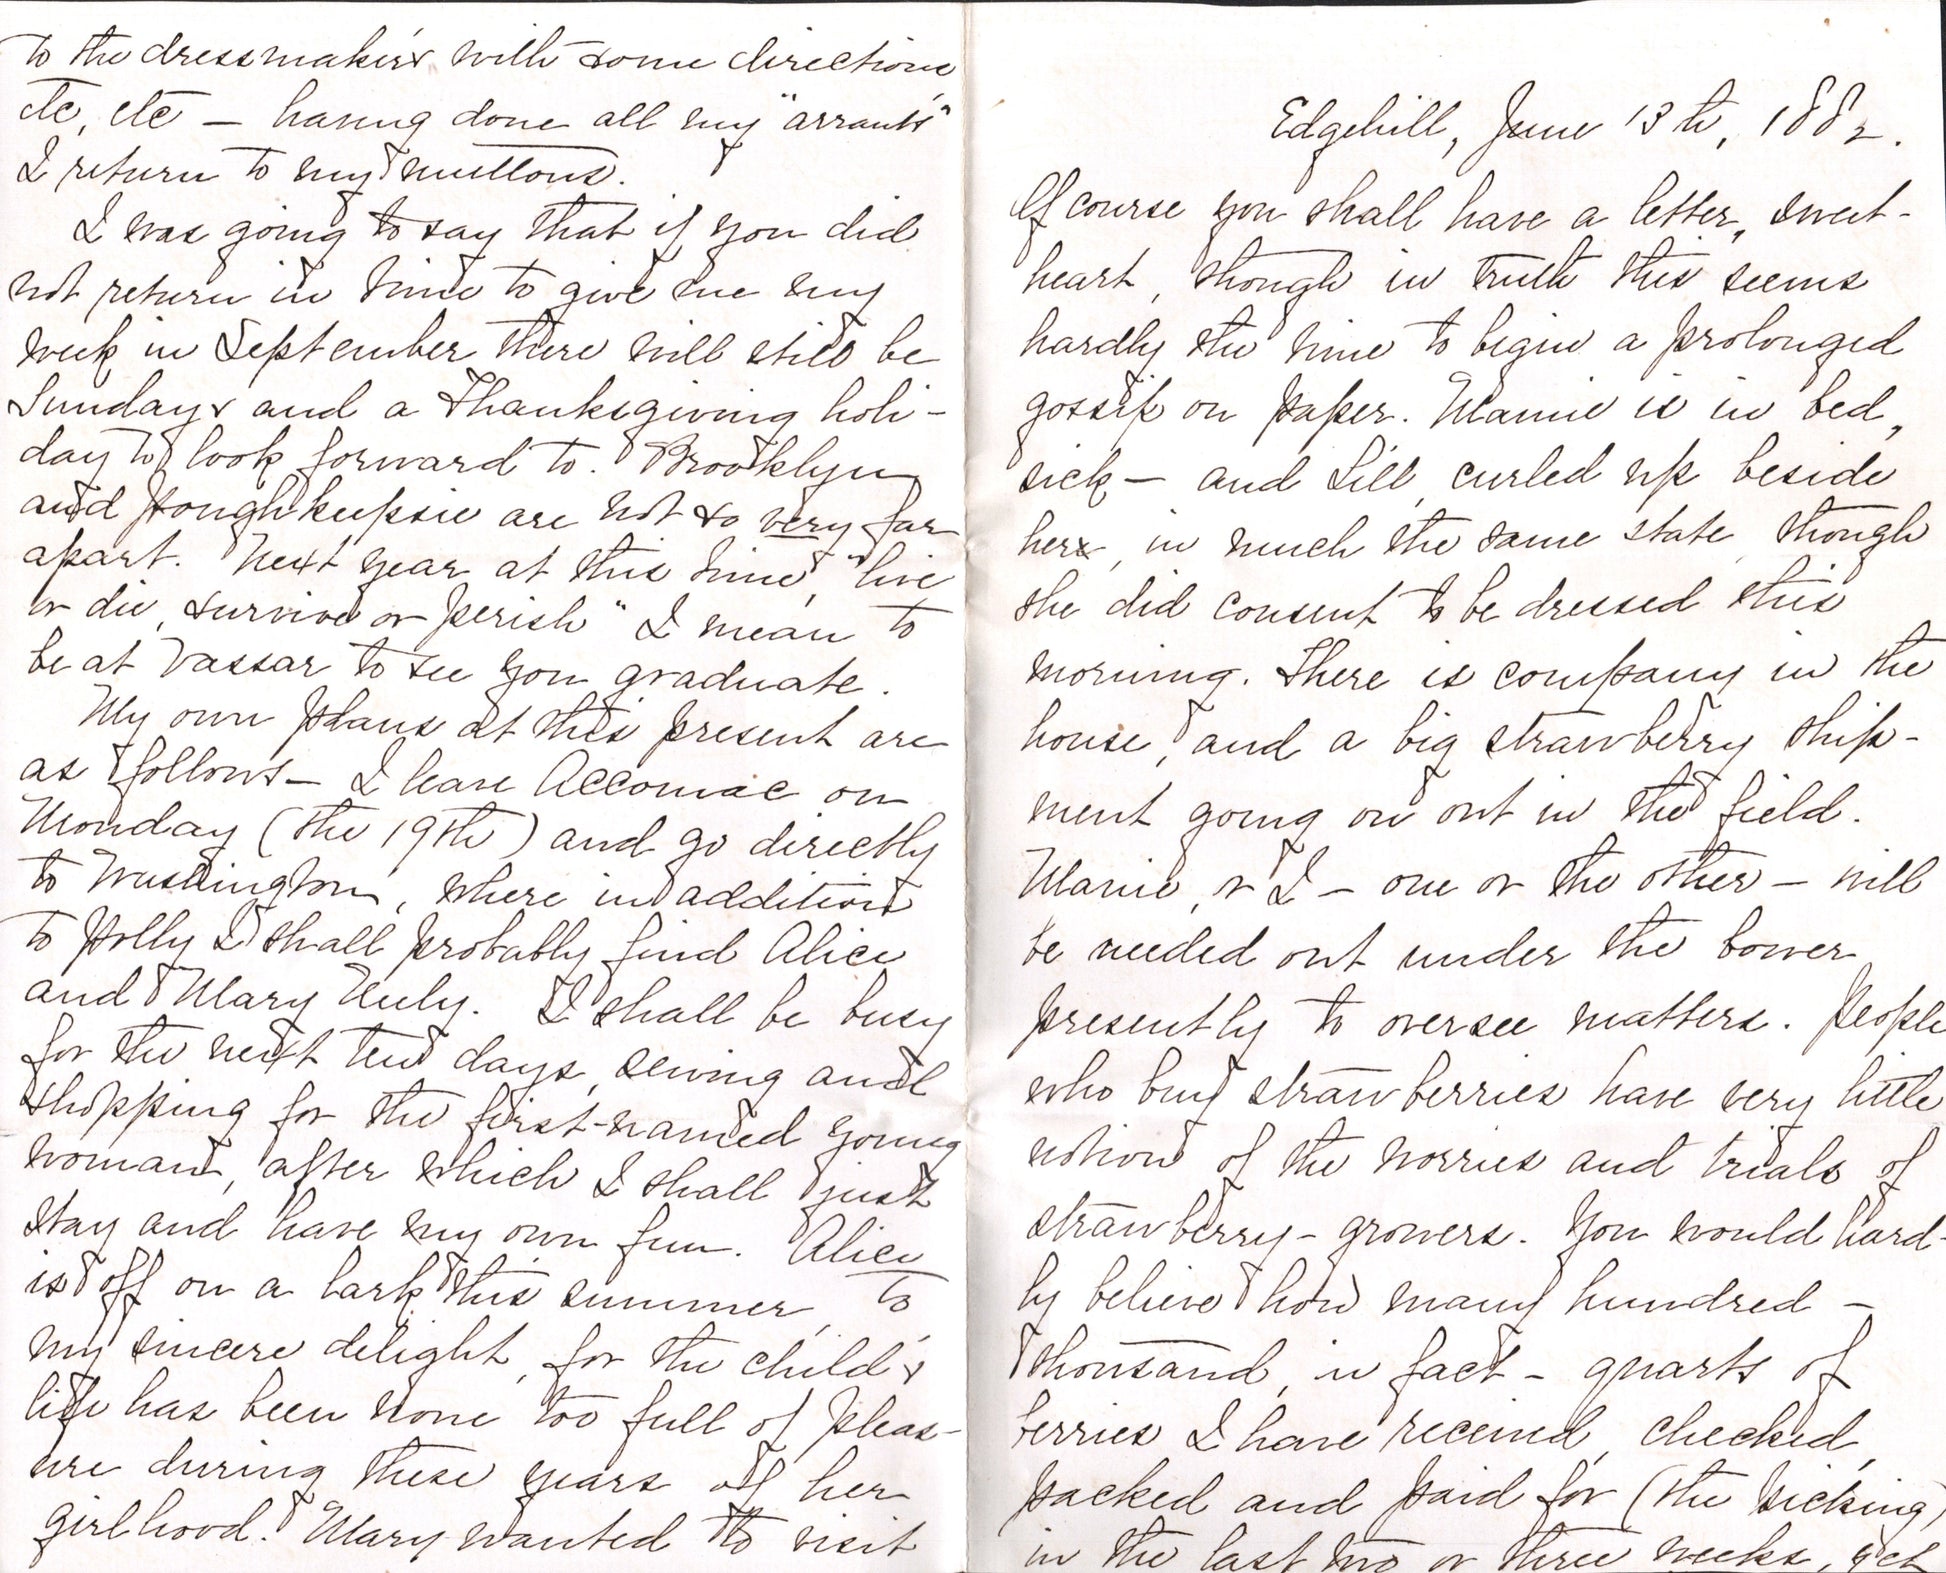 to the dressmaker's with some directions,
etc, etc — having done all my "arrants"
I return to my muttons.
I was going to say that if you did
not return in time to give me my
week in September there will still be
Sundays and a Thanksgiving holi-
day to look forward to. Brooklyn
and Poughkeepsie are not so very far
apart. Next year at this time, "live
or die, survive or perish" I mean to
be at Vassar to see you graduate.
My own plans at this present are
as follows — I leave Accomac on
Monday (the 19th) and go directly
to Washington, where in addition
to Polly I shall probably find Alice
and Mary Neely. I shall be busy
for the next ten days, sewing and
shopping for the first-named young
woman, after which I shall just
stay and have my own fun. Alice
is off on a lark this summer, to
my sincere delight, for the child's
life has been none too full of pleas-
ure during these years of her
girlhood. Mary wanted to visit
Edgehill, June 13th, 1882.
Of course you shall have a letter, sweet-
heart, though in truth this seems
hardly the time to begin a prolonged
gossip on paper. Mamie is in bed,
sick — and Lill, curled up beside
her, in much the same state, though
she did consent to be dressed this
morning. There is company in the
house, and a big strawberry ship-
ment going on out in the field.
Mamie, or I — one or the other — will
be needed out under the bower
presently to oversee matters. People
who buy strawberries have very little
notion of the worries and trials of
strawberry-growers. You would hard-
ly believe how many hundred —
thousand, in fact — quarts of
berries I have received, checked,
packed and paid for (the picking)
in the last two or three weeks, yet